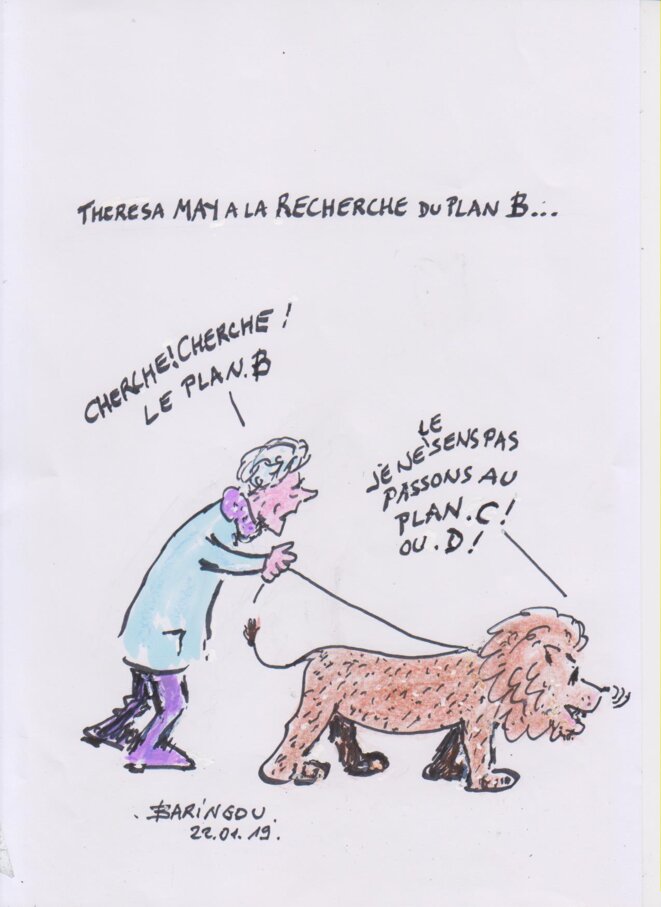 THERESA MAY A LA RECHERCHE DU PLAN B...
CHERCHE! CHERCHE!
LE PLAN.B
LE
JE NE SENS PAS
PASSONS AU
PLAN.C!
OU.D!
.BARINGOU.
22.01.19.